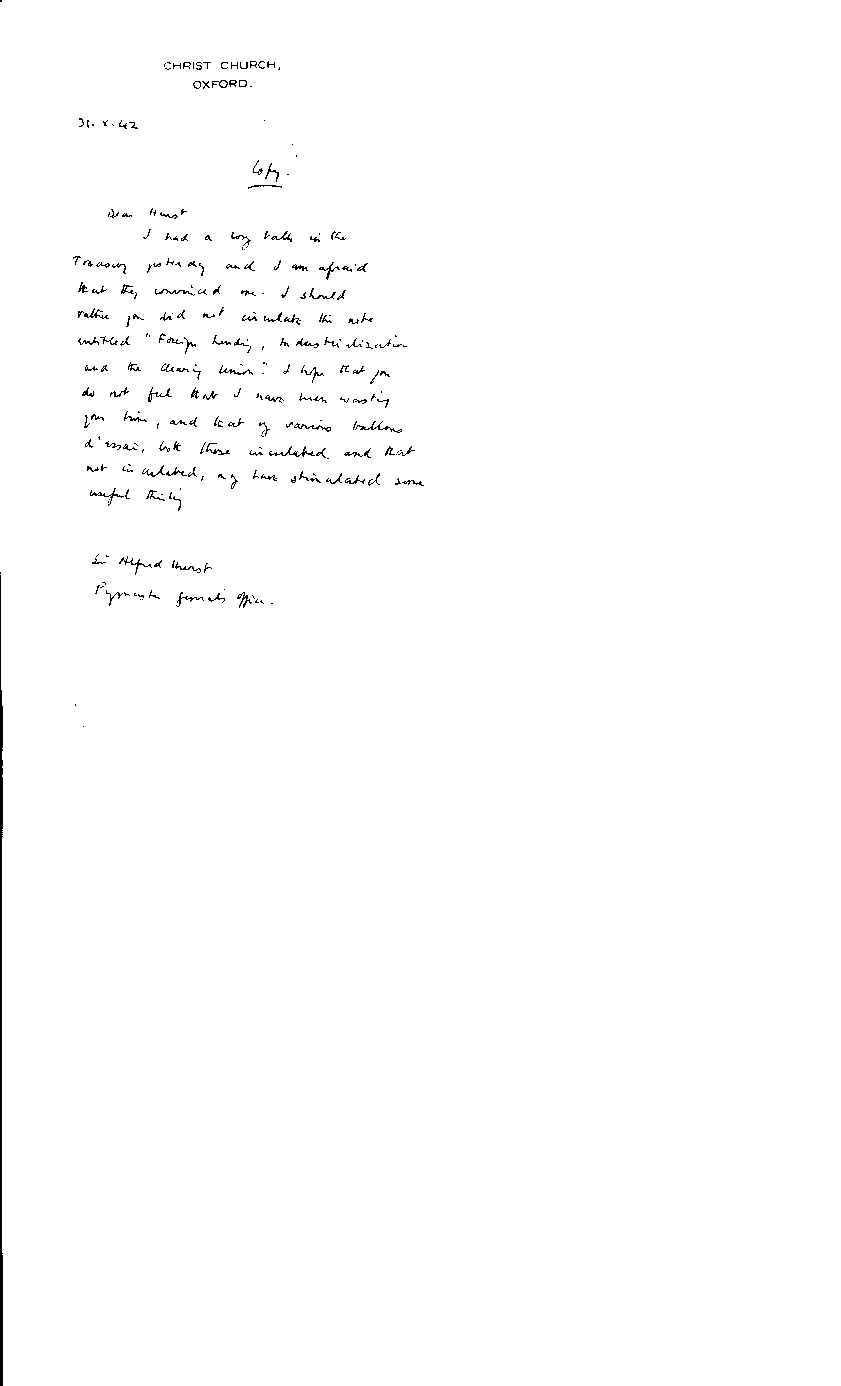 CHRIST CHURCH,
OXFORD.
31. X. 42
Copy.
Dear Hurst
I had a long talk in the
Treasury yesterday and I am afraid
that they convinced me. I should
rather you did not circulate the note
entitled "Foreign Lending, Industrialization
and the Clearing Union". I hope that you
do not feel that I have been wasting
your time, and that my various ballons
d'essai, both those circulated and that
not circulated, may have stimulated some
useful thinking
Sir Alfred Hurst
Paymaster General's Office.